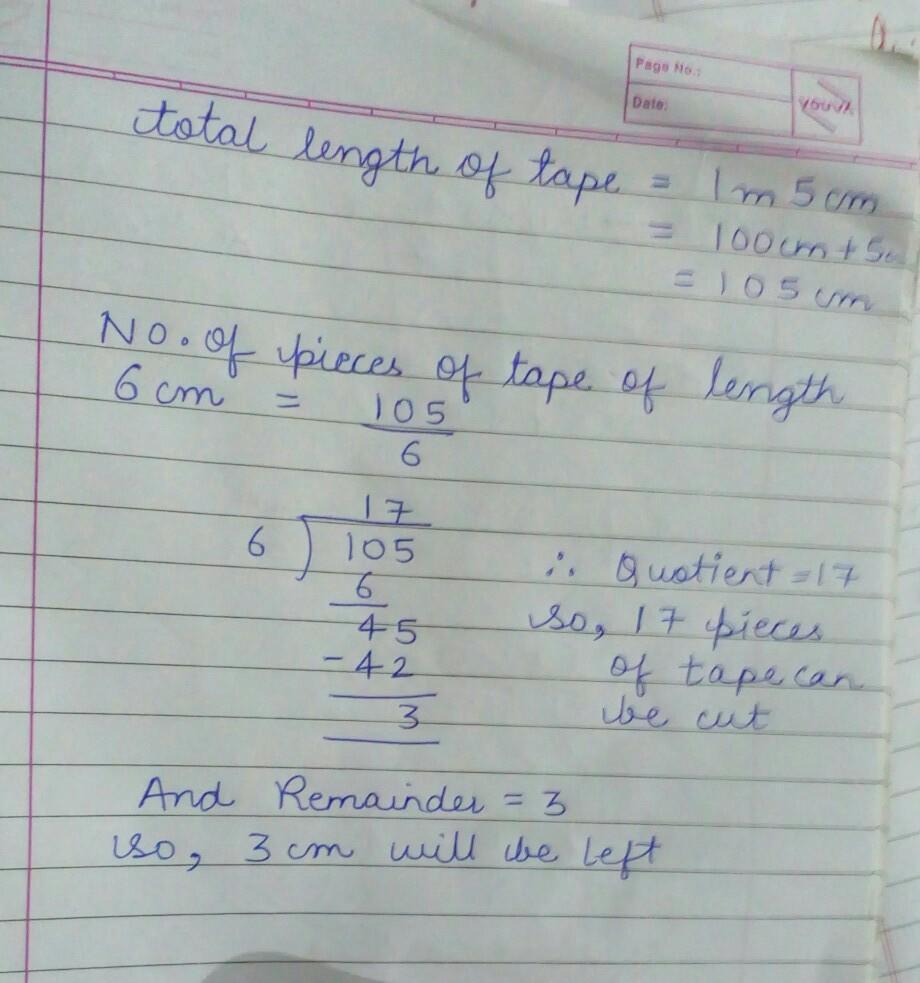 Page No.:
Date:
YOUVA
total length of tape = 1m 5cm
= 100cm + 5c
= 105 cm
No. of pieces of tape of length
6 cm = 105
6
17
6 ) 105
6
45
∴ Quotient = 17
so, 17 pieces
- 42
of tape can
3
be cut
And Remainder = 3
so, 3 cm will be left